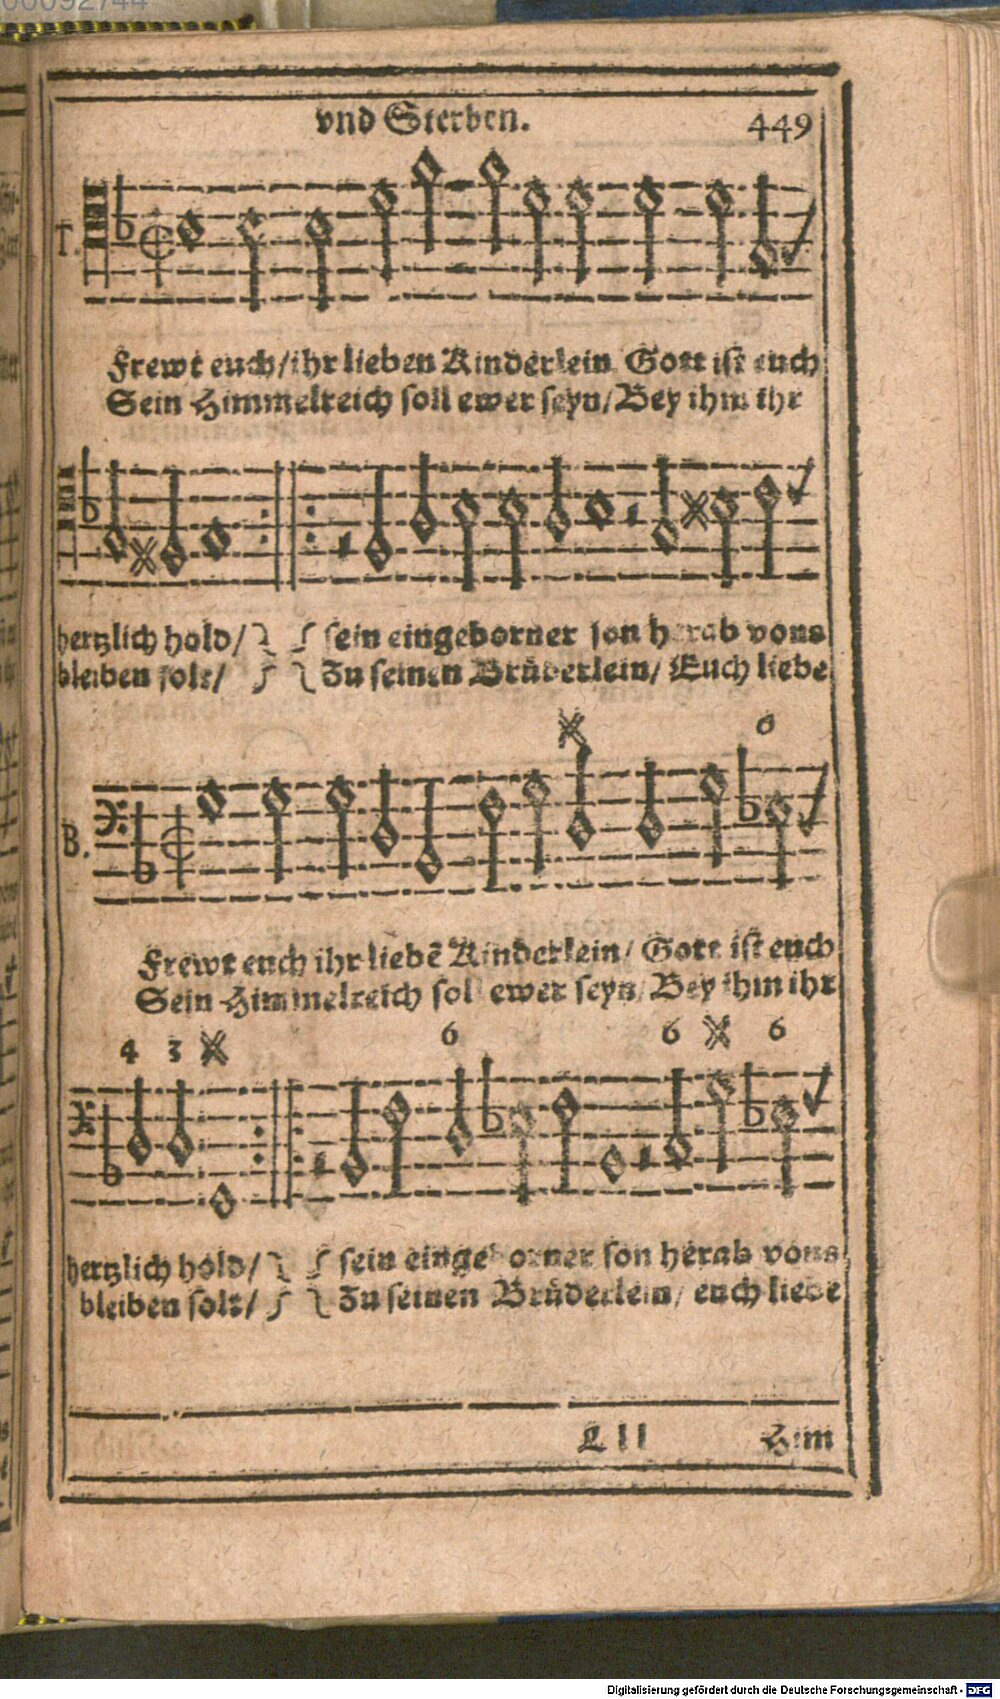 00092744
vnd Sterben. 449
T.
Frewt euch/ihr lieben Kinderlein Gott ist euch
Sein Himmelreich soll ewer seyn/Bey ihm ihr
hertzlich hold/ sein eingeborner son herab vons
bleiben solt/ Zu seinen Brüderlein/ Euch liebe
6
B.
Frewt euch ihr liebẽ Kinderlein/ Gott ist euch
Sein Himmelreich sol ewer seyn/Bey ihm ihr
4 3 6 6 6
hertzlich hold/ sein eingeborner son herab vons
bleiben solt/ Zu seinen Brüderlein/ euch liebe
Lll Him
Digitalisierung gefördert durch die Deutsche Forschungsgemeinschaft - DFG